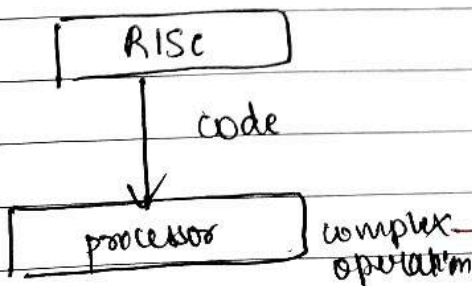 RISC
code
processor
complex
operation